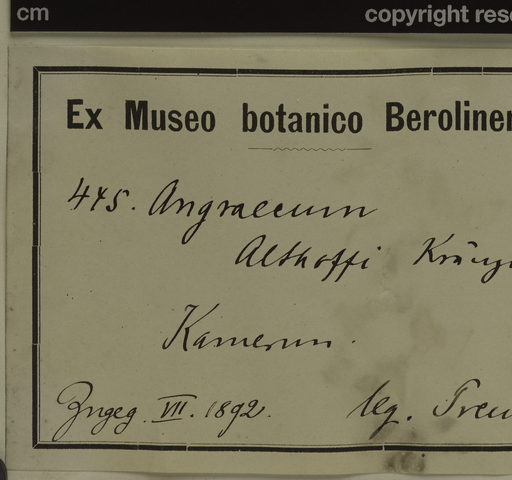 cm copyright rese
Ex Museo botanico Beroliner
445. Angraecum
Althoffi Kränz
Kamerun.
Zugeg. VII. 1892. leg. Preu